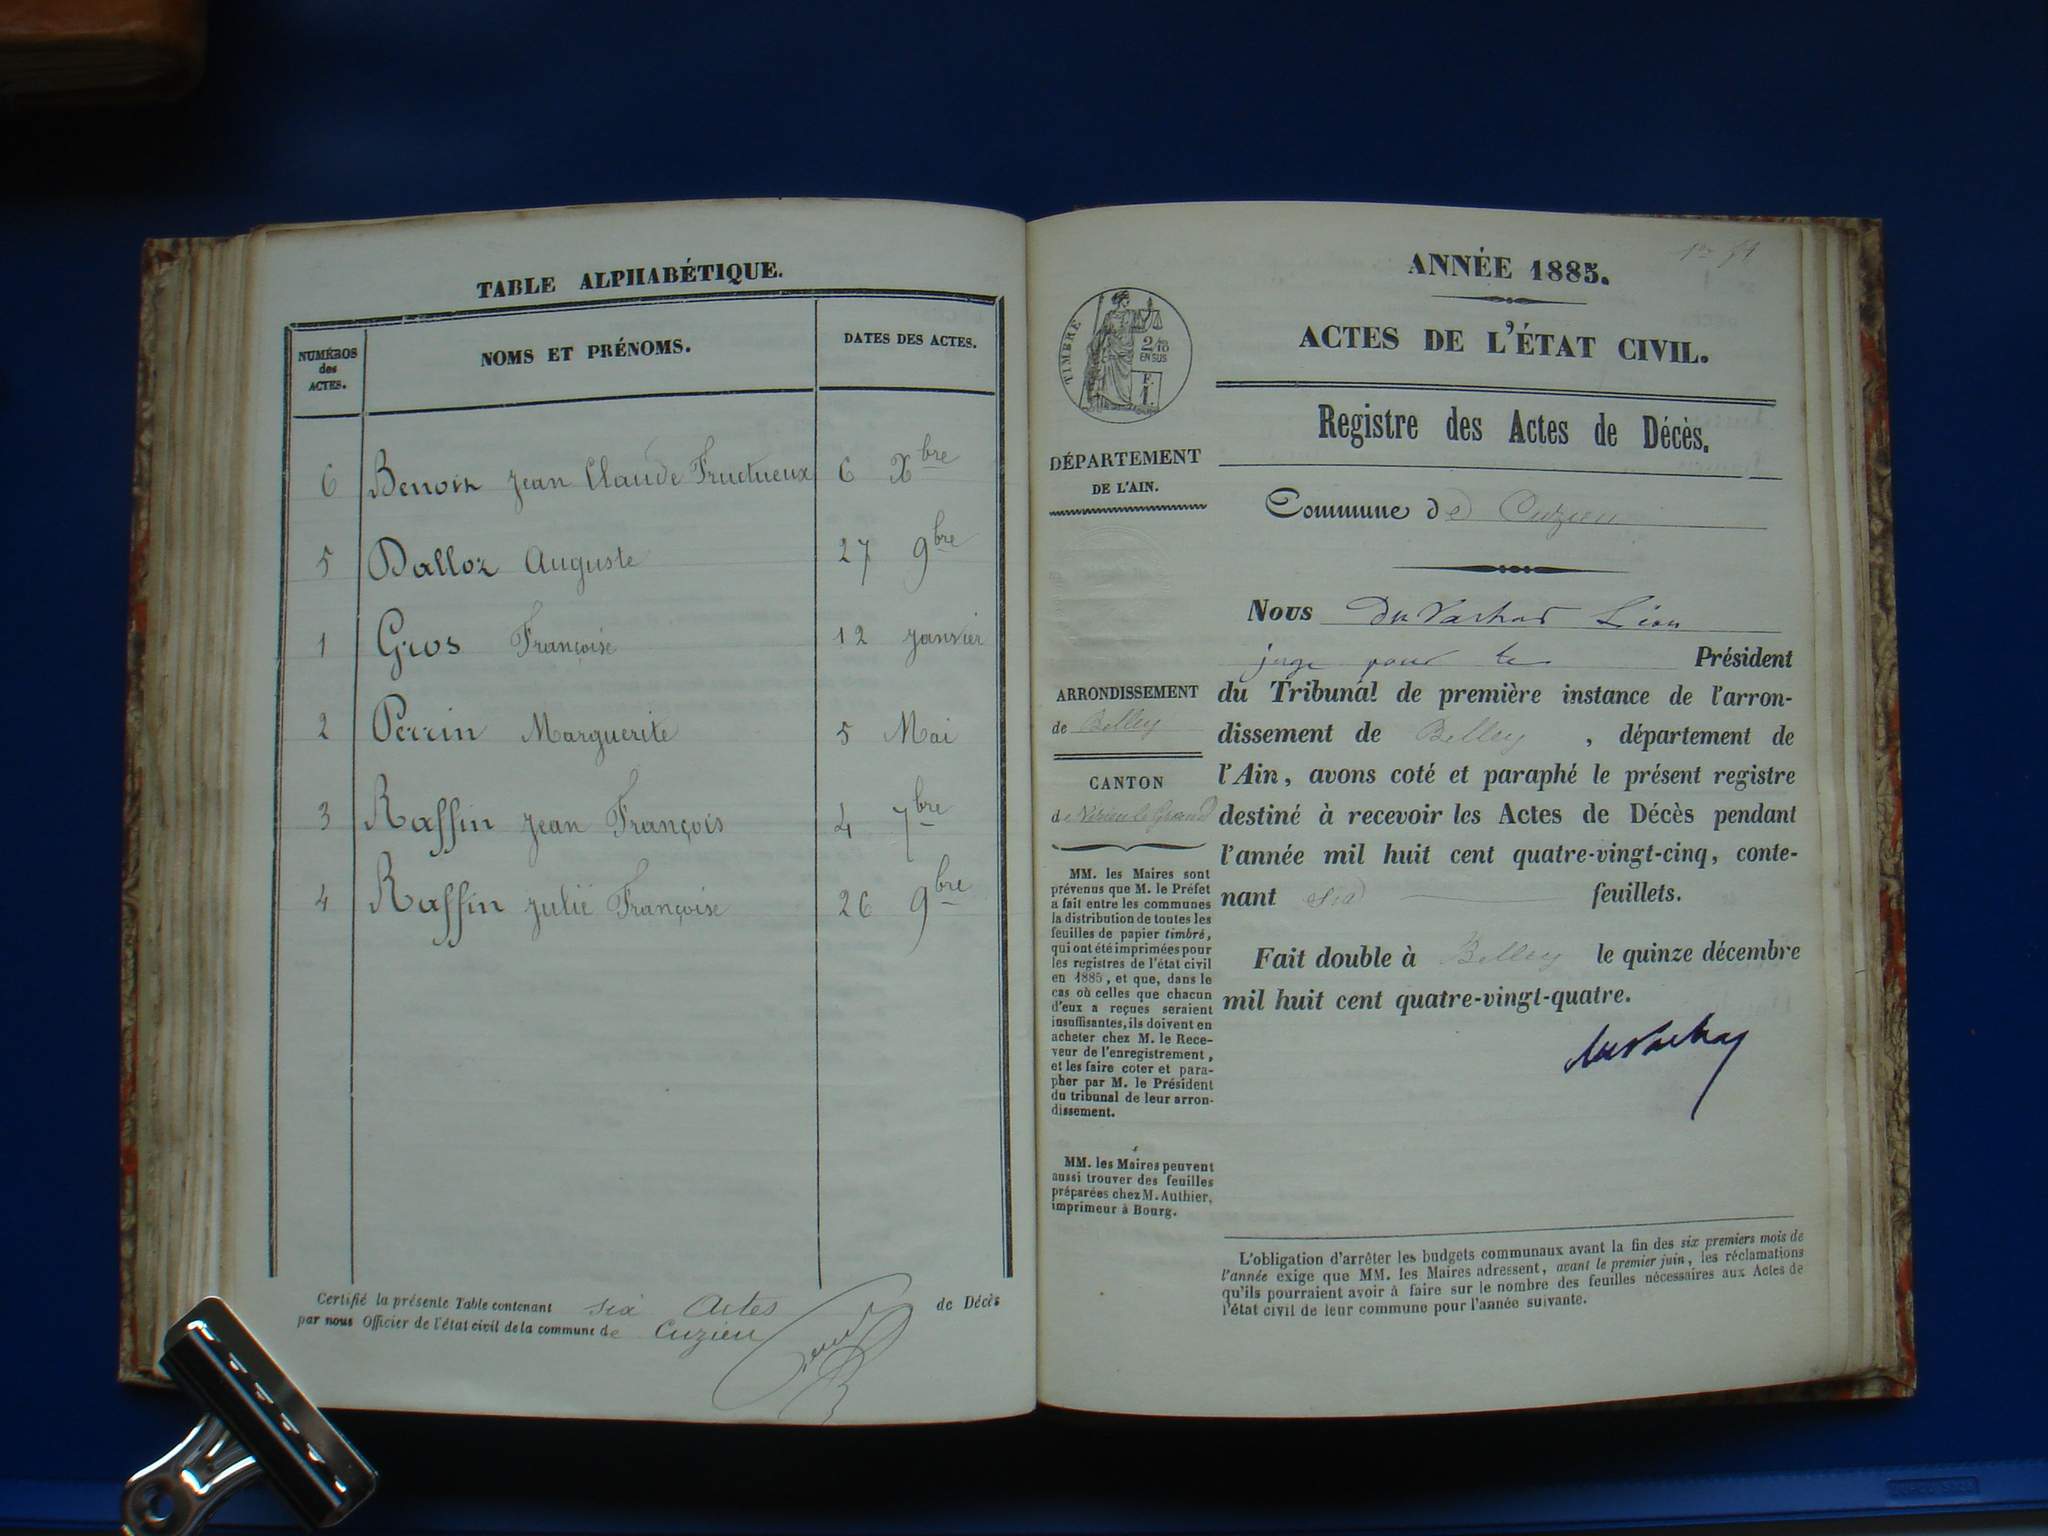 TABLE ALPHABÉTIQUE.
NUMÉROS
des
ACTES.
NOMS ET PRÉNOMS.
DATES DES ACTES.
6 Benoit Jean Claude Fructueux 6 Xbre
5 Dalloz Auguste 27 9bre
1 Gros Françoise 12 Janvier
2 Perrin Marguerite 5 Mai
3 Raffin Jean François 4 7bre
4 Raffin Julie Françoise 26 9bre
Certifié la présente Table contenant six Actes de Décès
par nous Officier de l'état civil de la commune de Cuzieu
ANNÉE 1885.
ACTES DE L'ÉTAT CIVIL.
Registre des Actes de Décès.
Commune de Cuzieu
TIMBRE
2/10
EN SUS
F.
1.
DÉPARTEMENT
DE L'AIN.
ARRONDISSEMENT
de Belley
CANTON
de Virieu le Grand
MM. les Maires sont
prévenus que M. le Préfet
a fait entre les communes
la distribution de toutes les
feuilles de papier timbré,
qui ont été imprimées pour
les registres de l'état civil
en 1885, et que, dans le
cas où celles que chacun
d'eux a reçues seraient
insuffisantes, ils doivent en
acheter chez M. le Rece-
veur de l'enregistrement,
et les faire coter et para-
pher par M. le Président
du tribunal de leur arron-
dissement.
MM. les Maires peuvent
aussi trouver des feuilles
préparées chez M. Authier,
imprimeur à Bourg.
Nous Du Vachat Léon
juge pour le Président
du Tribunal de première instance de l'arron-
dissement de Belley, département de
l'Ain, avons coté et paraphé le présent registre
destiné à recevoir les Actes de Décès pendant
l'année mil huit cent quatre-vingt-cinq, conte-
nant six feuillets.
Fait double à Belley le quinze décembre
mil huit cent quatre-vingt-quatre.
DuVachat
L'obligation d'arrêter les budgets communaux avant la fin des six premiers mois de
l'année exige que MM. les Maires adressent, avant le premier juin, les réclamations
qu'ils pourraient avoir à faire sur le nombre des feuilles nécessaires aux Actes de
l'état civil de leur commune pour l'année suivante.